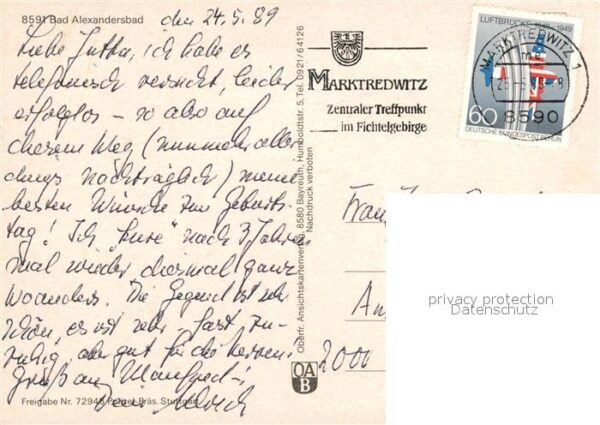 8591 Bad Alexandersbad
den 24.5.89
Liebe Jutta, ich habe es
telefonisch versucht, leider
erfolglos - so also auf
diesem Weg, (nunmehr aller
dings nachträglich) meine
besten Wünsche zum Geburts-
tag! Ich "kure" nach 3 Jahren
mal wieder diesmal ganz
woanders. Die Gegend ist sehr
schön, es ist sehr - fast zu-
ruhig, aber gut für die Nerven!
Gruß an Manfred!
Dein
Freigabe Nr. 72945 Präs. Stuttgart
Oberfr. Ansichtskartenverlag, 8580 Bayreuth, Humboldtstr. 5, Tel. 0921/64126
Nachdruck verboten
OA
B
MARKTREDWITZ
Zentraler Treffpunkt
im Fichtelgebirge
LUFTBRÜCKE 1948-1949
60
DEUTSCHE BUNDESPOST BERLIN
MARKTREDWITZ 1
8590
Frau
2000
privacy protection
Datenschutz